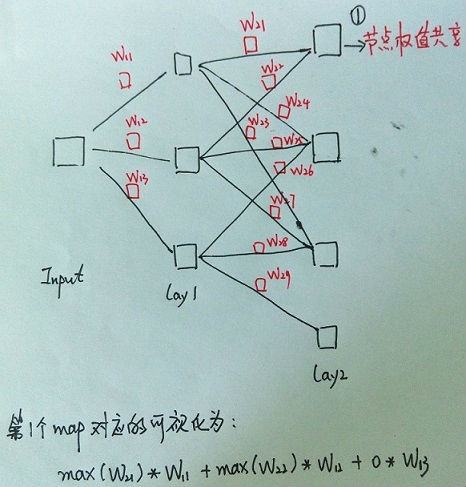 ①
W21
节点权值共享
W11
W22
W24
W12
W23
W25
W26
W13
W27
W28
W29
Input
Lay1
Lay2
第1个map对应的可视化为:
max(W21)*W11+max(W22)*W12+0*W13